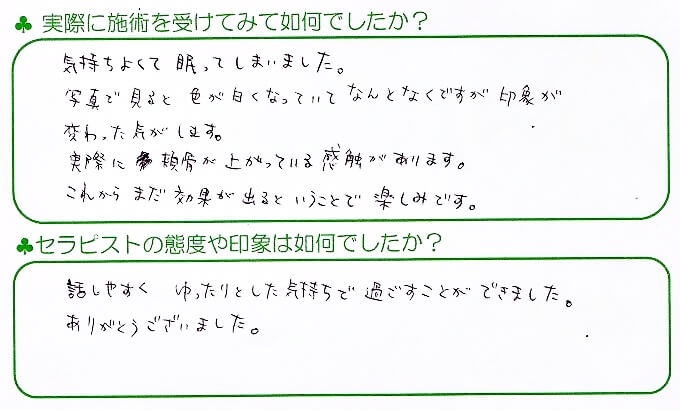 ♣ 実際に施術を受けてみて如何でしたか？
気持ちよくて 眠ってしまいました。
写真で見ると 色が白くなっていて なんとなくですが 印象が
変わった気がします。
実際に 頬骨が 上がっている 感触があります。
これから まだ 効果が 出ると いうことで 楽しみです。
♣ セラピストの態度や印象は如何でしたか？
話しやすく ゆったりとした 気持ちで 過ごすことが できました。
ありがとうございました。